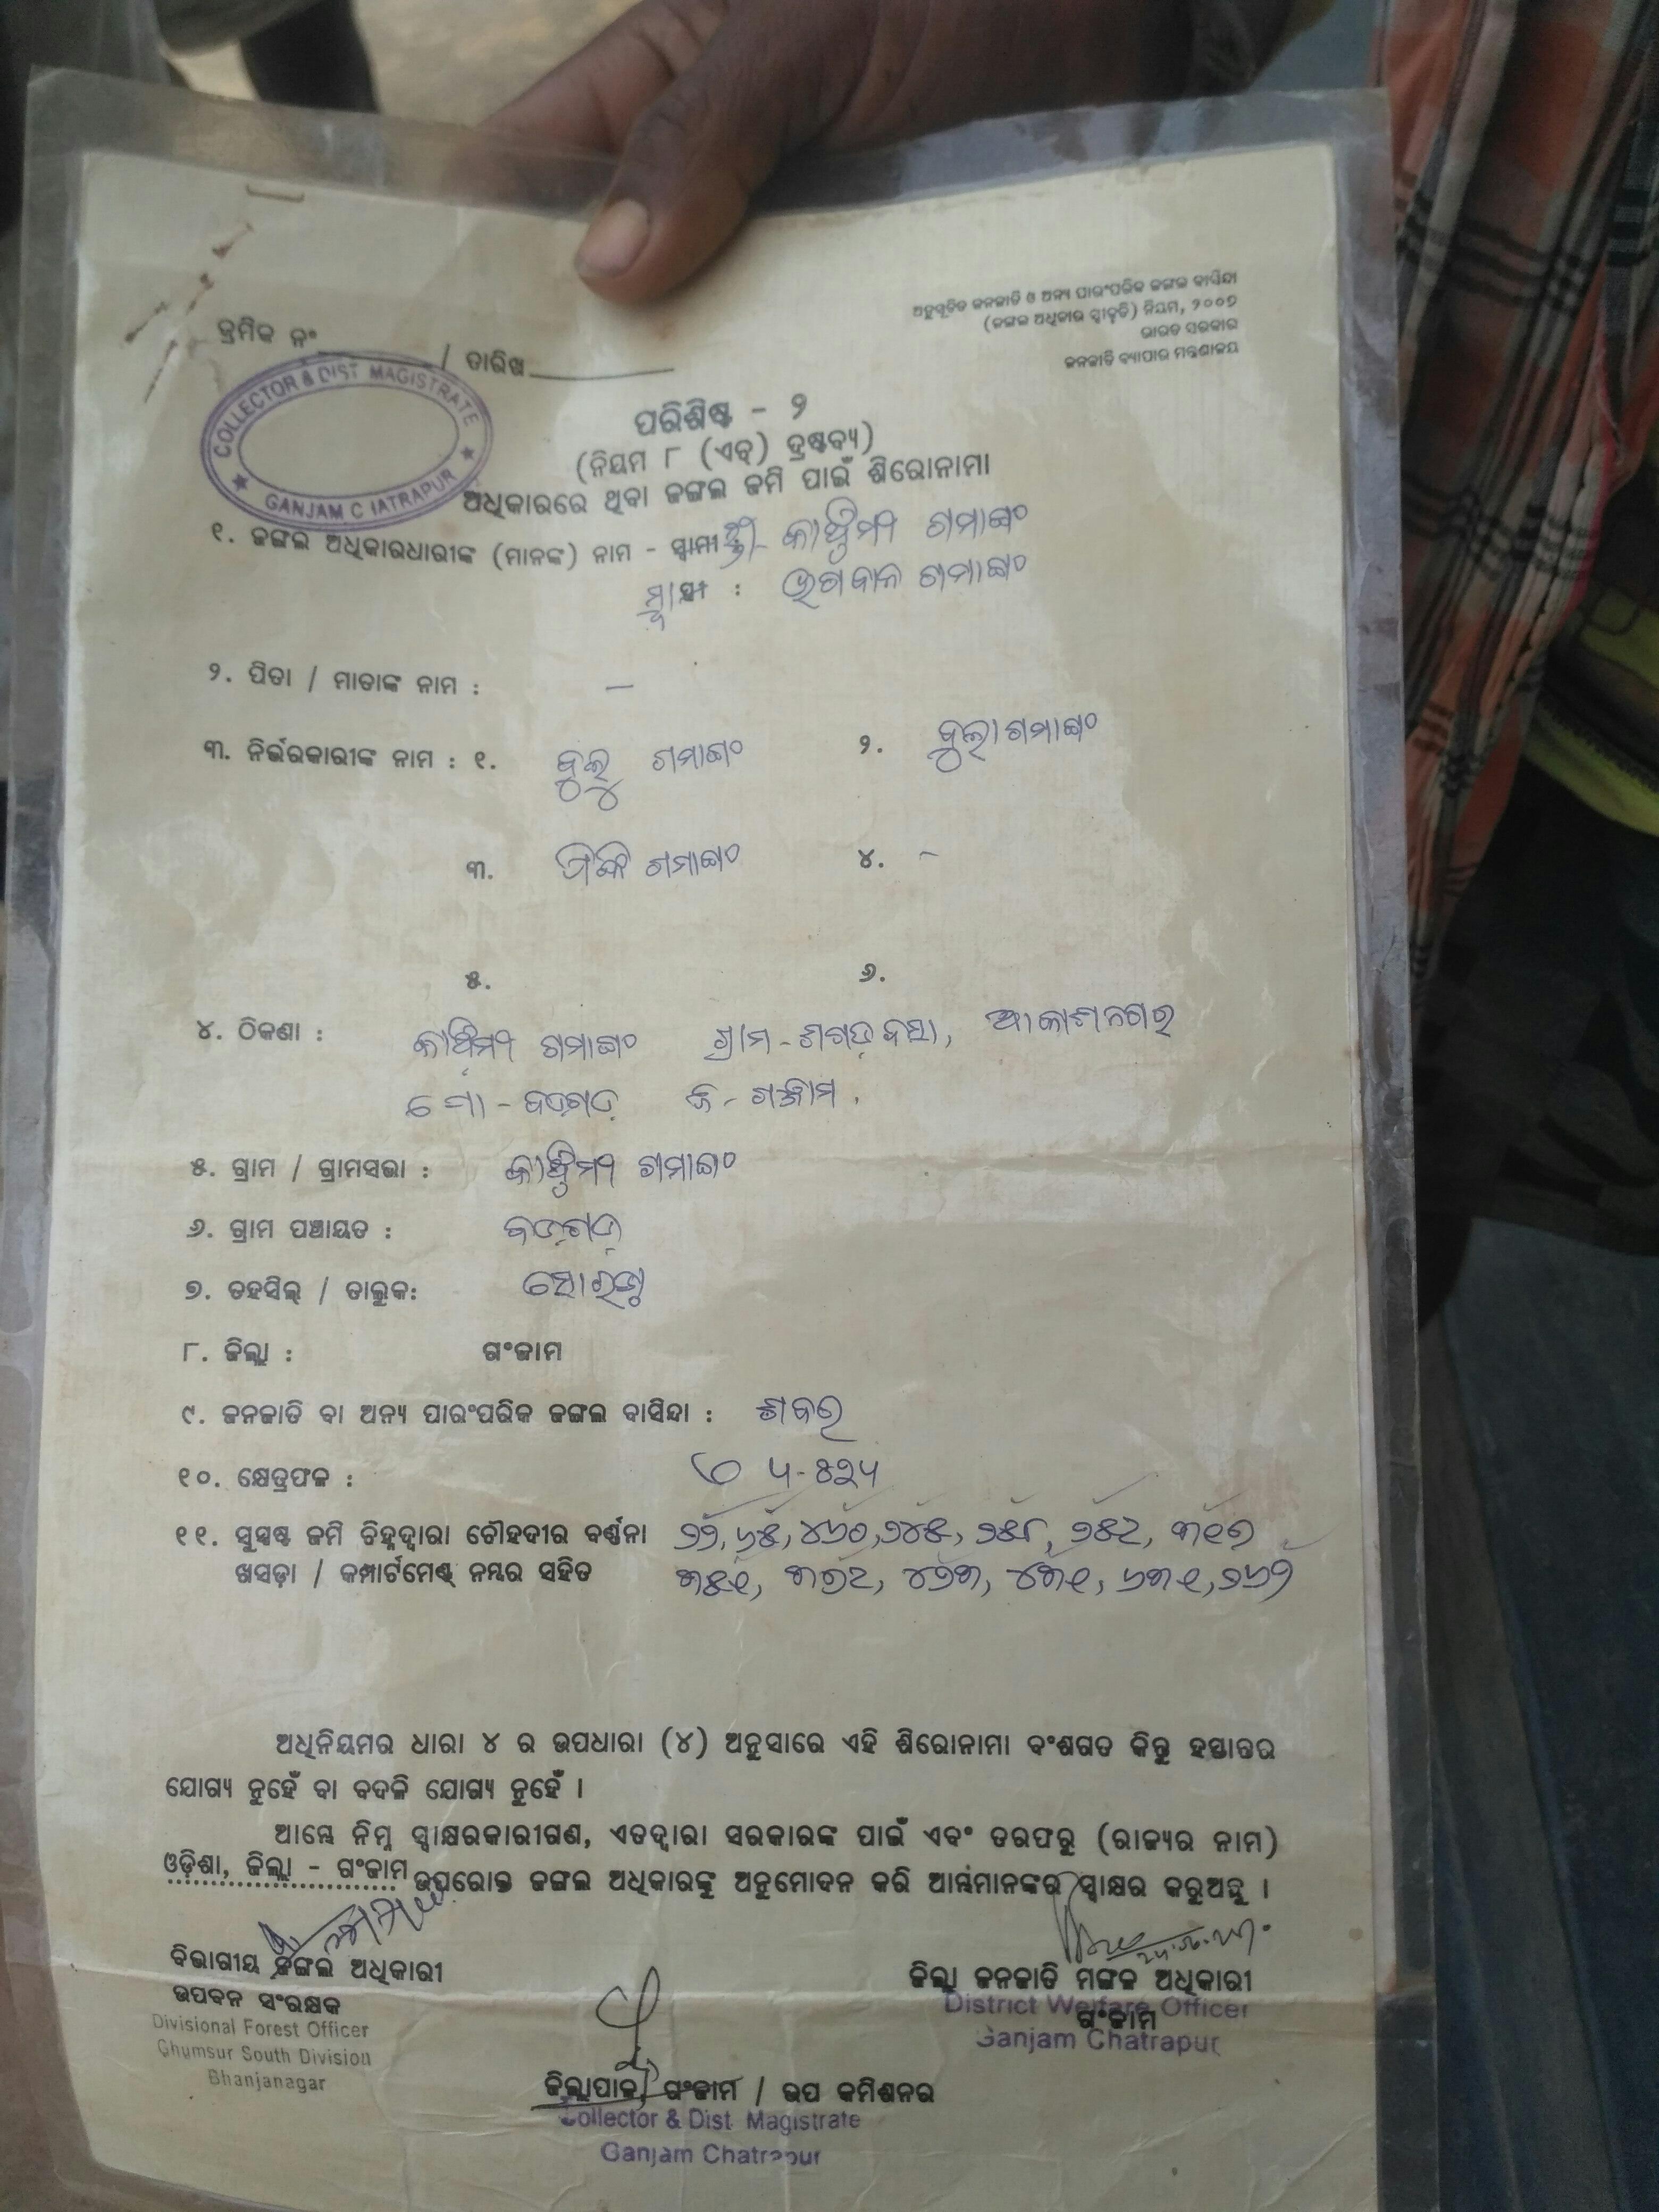 ଅନୁସୂଚିତ ଜନଜାତି ଓ ଅନ୍ୟ ପାରଂପରିକ ଜଙ୍ଗଲ ବାସିନ୍ଦା
(ଜଙ୍ଗଲ ଅଧିକାର ସ୍ୱୀକୃତି) ନିୟମ, ୨୦୦୭
ଭାରତ ସରକାର
ଜନଜାତି ବ୍ୟାପାର ମନ୍ତ୍ରଣାଳୟ
କ୍ରମିକ ନଂ / ତାରିଖ
COLLECTOR & DIST MAGISTRATE
GANJAM C IATRAPUR
ପରିଶିଷ୍ଟ - ୨
(ନିୟମ ୮ (ଏଚ୍) ଦ୍ରଷ୍ଟବ୍ୟ)
ଅଧିକାରରେ ଥିବା ଜଙ୍ଗଲ ଜମି ପାଇଁ ଶିରୋନାମା
୧. ଜଙ୍ଗଲ ଅଧିକାରଧାରୀଙ୍କ (ମାନଙ୍କ) ନାମ - ସ୍ତ୍ରୀ - ଗମାଙ୍ଗଂ
ସ୍ୱାମୀ : ଭଗବାନ ଗମାଙ୍ଗଂ
୨. ପିତା / ମାତାଙ୍କ ନାମ : —
୩. ନିର୍ଭରକାରୀଙ୍କ ନାମ : ୧. ବୁଲୁ ଗମାଙ୍ଗଂ ୨. ବୁଲା ଗମାଙ୍ଗଂ
୩. ମିଙ୍କି ଗମାଙ୍ଗଂ ୪. -
୫. ୬.
୪. ଠିକଣା : ଗମାଙ୍ଗଂ ଗ୍ରାମ - ଆକାଶନଗର
ପୋ - ବଡ଼ଗଡ଼ ଜି - ଗଞ୍ଜାମ .
୫. ଗ୍ରାମ / ଗ୍ରାମସଭା : ଗମାଙ୍ଗଂ
୬. ଗ୍ରାମ ପଞ୍ଚାୟତ : ବଡ଼ଗଡ଼
୭. ତହସିଲ୍ / ତାଲୁକ: ସୋରଡ଼ା
୮. ଜିଲ୍ଲା : ଗଂଜାମ
୯. ଜନଜାତି ବା ଅନ୍ୟ ପାରଂପରିକ ଜଙ୍ଗଲ ବାସିନ୍ଦା : ଶବର
୧୦. କ୍ଷେତ୍ରଫଳ :
୧୧. ସୁସ୍ପଷ୍ଟ ଜମି ଚିହ୍ନଦ୍ୱାରା ଚୌହଦୀର ବର୍ଣ୍ଣନା
ଖସଡ଼ା / କମ୍ପାର୍ଟମେଣ୍ଟ୍ ନମ୍ବର ସହିତ
ଅଧିନିୟମର ଧାରା ୪ ର ଉପଧାରା (୪) ଅନୁସାରେ ଏହି ଶିରୋନାମା ବଂଶଗତ କିନ୍ତୁ ହସ୍ତାନ୍ତର
ଯୋଗ୍ୟ ନୁହେଁ ବା ବଦଳି ଯୋଗ୍ୟ ନୁହେଁ ।
ଆମ୍ଭେ ନିମ୍ନ ସ୍ୱାକ୍ଷରକାରୀଗଣ, ଏତଦ୍ୱାରା ସରକାରଙ୍କ ପାଇଁ ଏବଂ ତରଫରୁ (ରାଜ୍ୟର ନାମ)
ଓଡ଼ିଶା, ଜିଲ୍ଲା - ଗଂଜାମ ଉପରୋକ୍ତ ଜଙ୍ଗଲ ଅଧିକାରଙ୍କୁ ଅନୁମୋଦନ କରି ଆମ୍ଭମାନଙ୍କର ସ୍ୱାକ୍ଷର କରୁଅଛୁ ।
ବିଭାଗୀୟ ଜଙ୍ଗଲ ଅଧିକାରୀ
ଉପବନ ସଂରକ୍ଷକ
Divisional Forest Officer
Ghumsur South Division
Bhanjanagar
ଜିଲ୍ଲା ଜନଜାତି ମଙ୍ଗଳ ଅଧିକାରୀ
ଗଂଜାମ
District Welfare Officer
Ganjam Chatrapur
ଜିଲ୍ଲାପାଳ, ଗଂଜାମ / ଉପ କମିଶନର
Collector & Dist. Magistrate
Ganjam Chatrapur